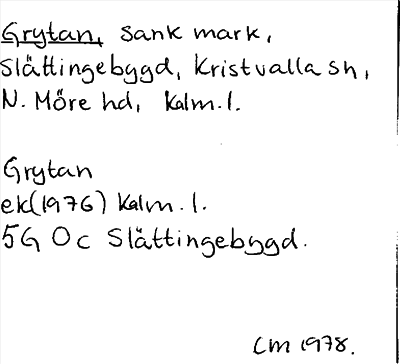 Grytan, sank mark,
Slättingebygd, Kristvalla sn,
N. Möre hd, Kalm. l.
Grytan
ek(1976) Kalm. l.
5G 0c Slättingebygd.
CM 1978.